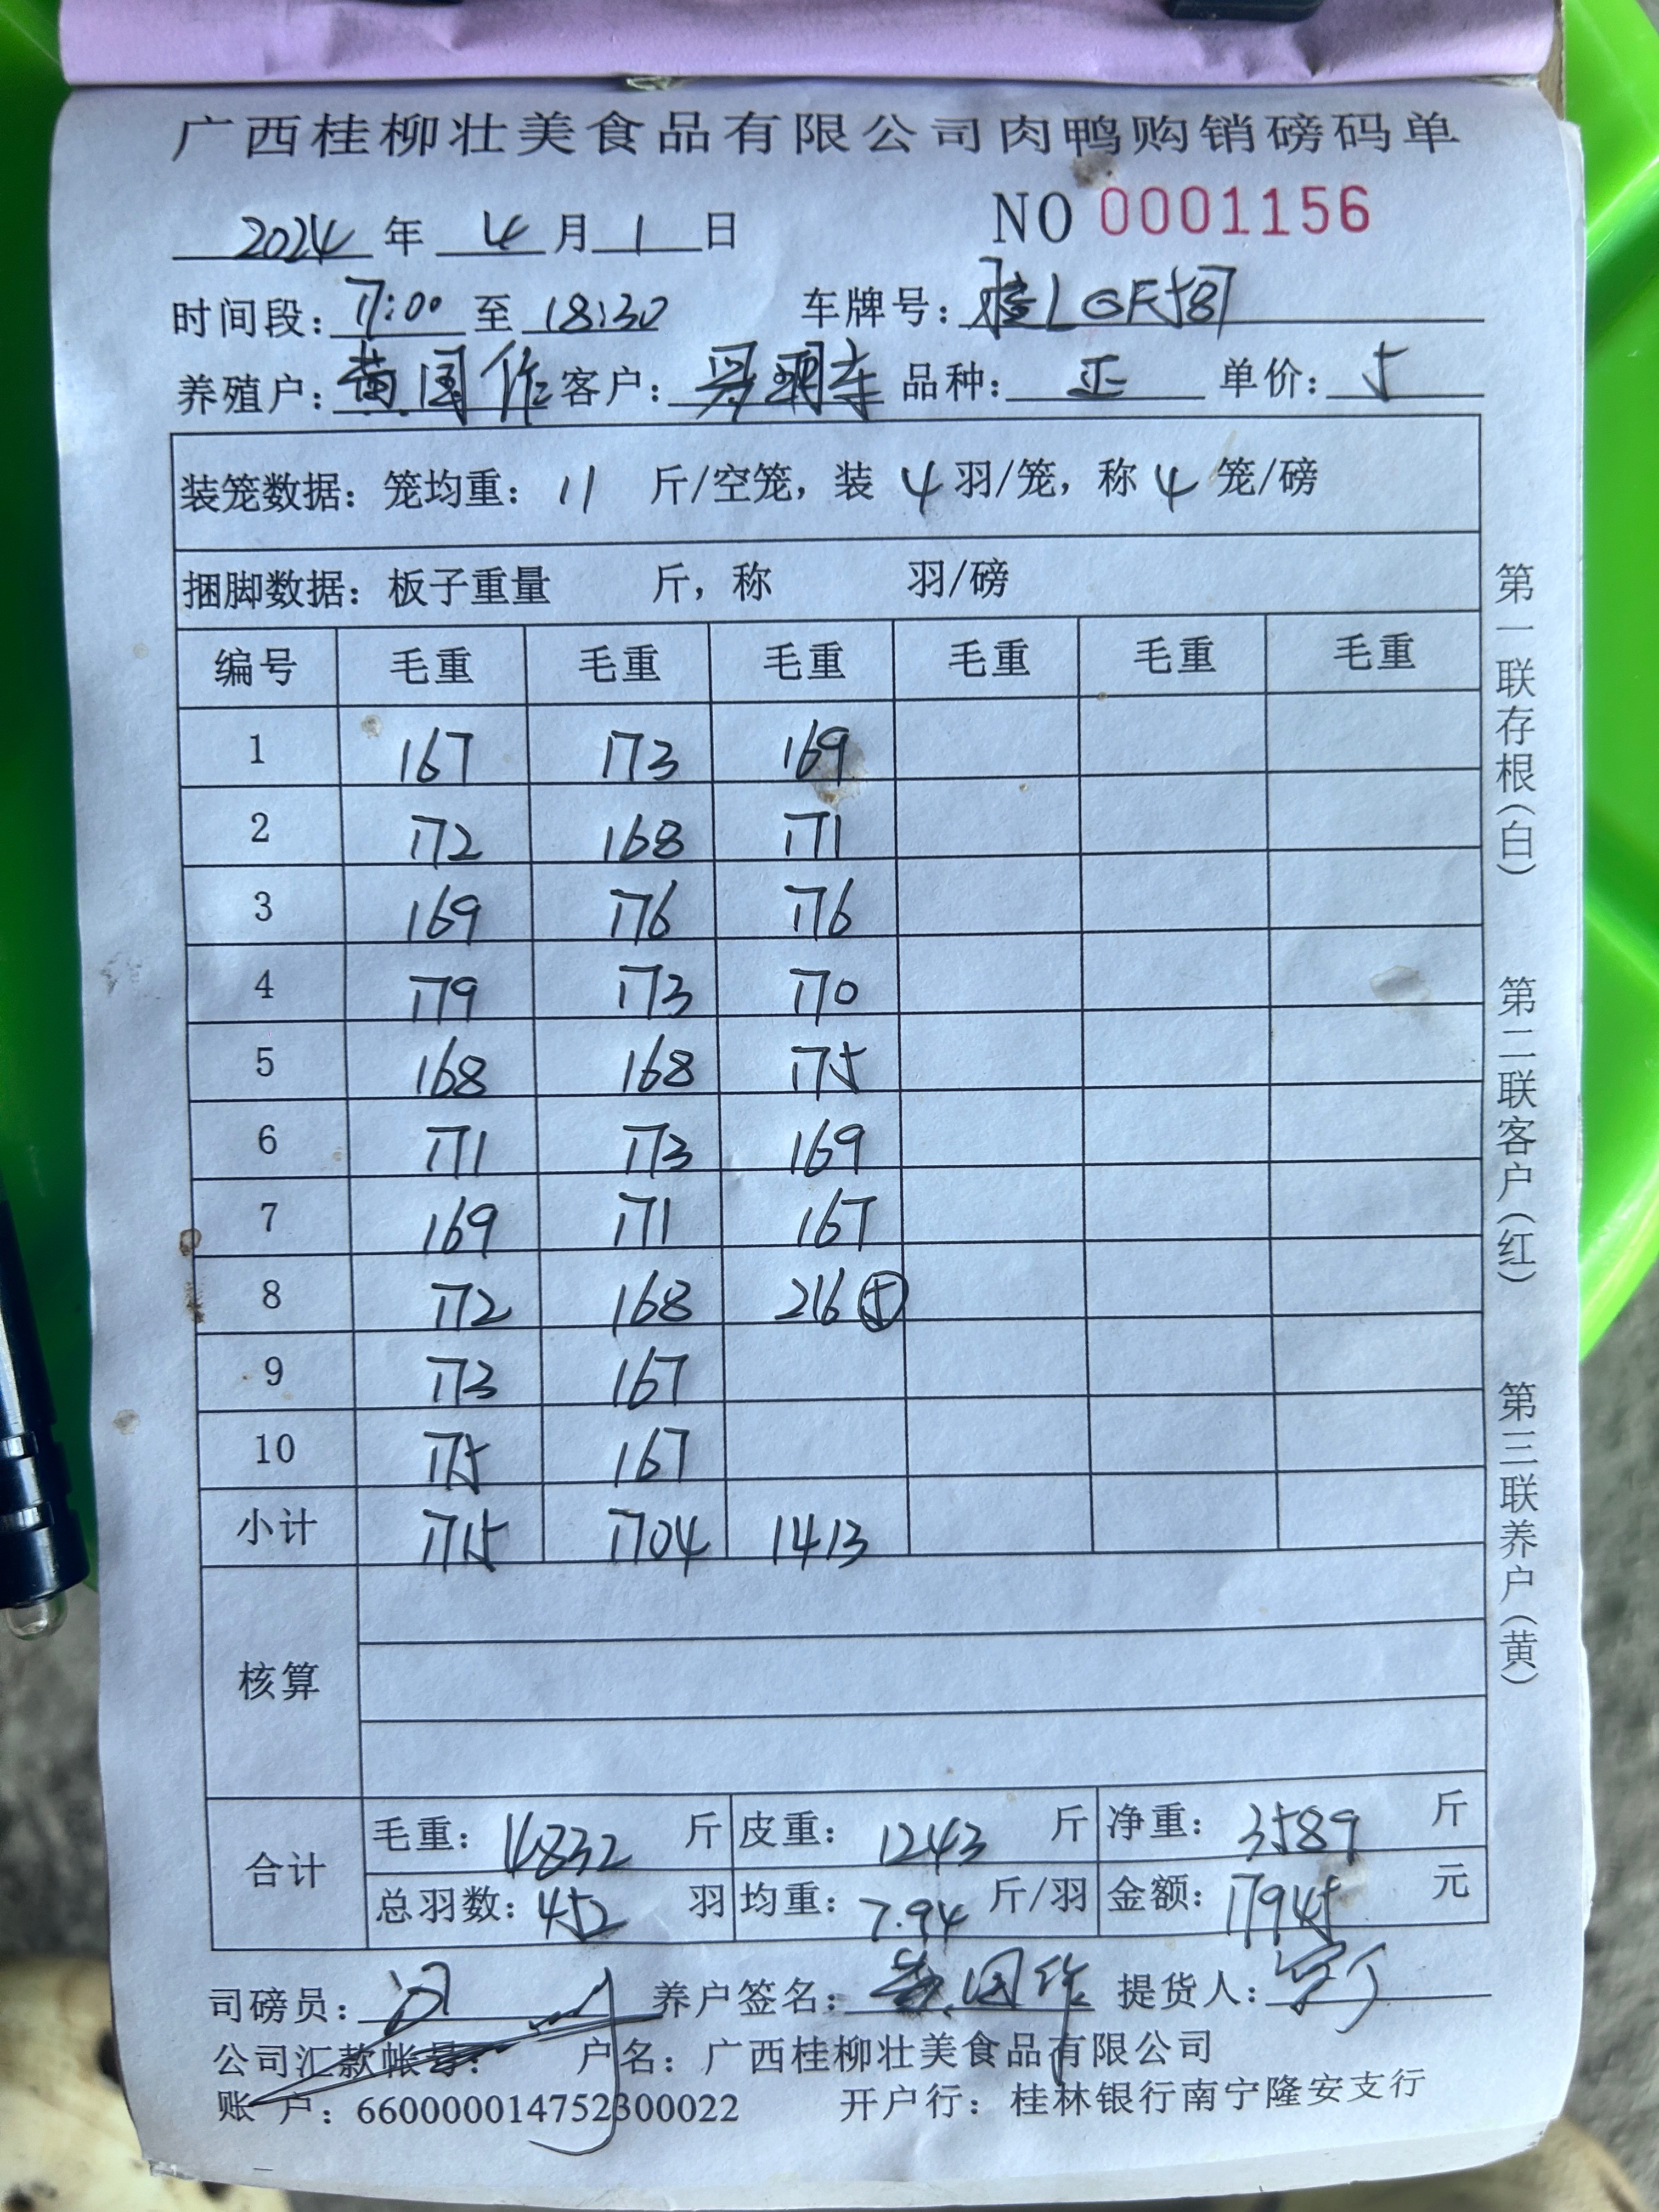 广西桂柳壮美食品有限公司肉鸭购销磅码单
2024 年 4 月 1 日 NO 0001156
时间段: 17:00 至 18:30 车牌号: 桂L GF587
养殖户: 黄国作 客户: 品种: 正 单价: 5
装笼数据: 笼均重: 11 斤/空笼, 装 4 羽/笼, 称 4 笼/磅
捆脚数据: 板子重量 斤, 称 羽/磅
编号 毛重 毛重 毛重 毛重 毛重 毛重
1 167 173 169
2 172 168 171
3 169 176 176
4 179 173 170
5 168 168 175
6 171 173 169
7 169 171 167
8 172 168 216 ⑤
9 173 167
10 175 167
小计 1715 1704 1413
核算
合计 毛重: 4832 斤 皮重: 1243 斤 净重: 3589 斤
总羽数: 452 羽 均重: 7.94 斤/羽 金额: 17945 元
司磅员: 养户签名: 黄国作 提货人:
公司汇款帐号: 户名: 广西桂柳壮美食品有限公司
账户: 660000014752300022 开户行: 桂林银行南宁隆安支行
第一联存根(白) 第二联客户(红) 第三联养户(黄)